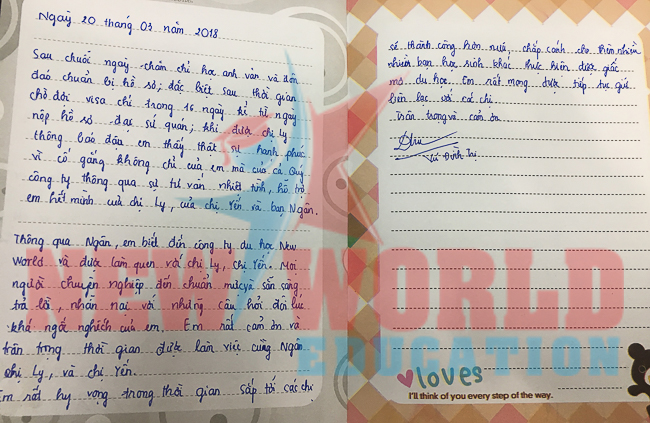 Ngày 20 tháng 03 năm 2018
Sau chuỗi ngày chăm chỉ học anh văn và đôn
đáo chuẩn bị hồ sơ; đặc biệt sau thời gian
chờ đợi visa chỉ trong 16 ngày kể từ ngày
nộp hồ sơ đại sứ quán; khi được chị Ly
thông báo đậu em thấy thật sự hạnh phúc
vì cố gắng không chỉ của em mà của cả Quý
công ty thông qua sự tư vấn nhiệt tình, hỗ trợ
em hết mình của chị Ly, của chị Yến và bạn Ngân.
Thông qua Ngân, em biết đến công ty du học New
World và được làm quen với chị Ly, chị Yến. Mọi
người chuyên nghiệp đến chuẩn mực và sẵn sàng
trả lời, nhẫn nại với những câu hỏi đôi lúc
khá ngốc nghếch của em. Em rất cảm ơn và
trân trọng thời gian được làm việc cùng Ngân
chị Ly, và chị Yến.
Em rất hy vọng trong thời gian sắp tới các chị
sẽ thành công hơn nữa, chấp cánh cho thêm nhiều
nhiều bạn học sinh khác thực hiện được giấc
mơ du học. Em rất mong được tiếp tục giữ
liên lạc với các chị.
Trân trọng và cảm ơn
Đình Thi
NEW WORLD
EDUCATION
loves
I'll think of you every step of the way.